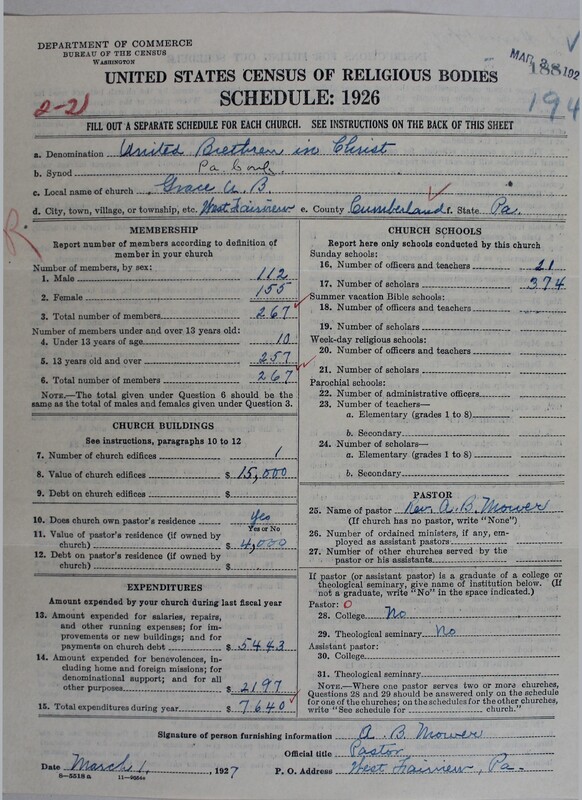 DEPARTMENT OF COMMERCE
BUREAU OF THE CENSUS
WASHINGTON
UNITED STATES CENSUS OF RELIGIOUS BODIES
SCHEDULE: 1926
2-21
194
FILL OUT A SEPARATE SCHEDULE FOR EACH CHURCH. SEE INSTRUCTIONS ON THE BACK OF THIS SHEET
a. Denomination United Brethren in Christ
b. Synod Pa. Conf.
c. Local name of church Grace U. B.
d. City, town, village, or township, etc. West Fairview e. County Cumberland f. State Pa.
MEMBERSHIP
Report number of members according to definition of
member in your church
Number of members, by sex:
1. Male 112
2. Female 155
3. Total number of members 267
Number of members under and over 13 years old:
4. Under 13 years of age 10
5. 13 years old and over 257
6. Total number of members 267
NOTE.—The total given under Question 6 should be
same as the total of males and females given under Question 3.
CHURCH BUILDINGS
See instructions, paragraphs 10 to 12
7. Number of church edifices 1
8. Value of church edifices $ 15,000
9. Debt on church edifices $
10. Does church own pastor's residence Yes
Yes or No
11. Value of pastor's residence (if owned by
church) $ 4,000
12. Debt on pastor's residence (if owned by
church) $
EXPENDITURES
Amount expended by your church during last fiscal year
13. Amount expended for salaries, repairs,
and other running expenses; for im-
provements or new buildings; and for
payments on church debt $ 5443
14. Amount expended for benevolences, in-
cluding home and foreign missions; for
denominational support; and for all
other purposes $ 2197
15. Total expenditures during year $ 7640
CHURCH SCHOOLS
Report here only schools conducted by this church
Sunday schools:
16. Number of officers and teachers 21
17. Number of scholars 374
Summer vacation Bible schools:
18. Number of officers and teachers
19. Number of scholars
Week-day religious schools:
20. Number of officers and teachers
21. Number of scholars
Parochial schools:
22. Number of administrative officers
23. Number of teachers—
a. Elementary (grades 1 to 8)
b. Secondary
24. Number of scholars—
a. Elementary (grades 1 to 8)
b. Secondary
PASTOR
25. Name of pastor Rev. A. B. Mower
(If church has no pastor, write "None")
26. Number of ordained ministers, if any, em-
ployed as assistant pastors
27. Number of other churches served by the
pastor or his assistants
If pastor (or assistant pastor) is a graduate of a college or
theological seminary, give name of institution below. (If
not a graduate, write "No" in the space indicated.)
Pastor: 0
28. College No
29. Theological seminary No
Assistant pastor:
30. College
31. Theological seminary
NOTE.—Where one pastor serves two or more churches,
Questions 28 and 29 should be answered only on the schedule
for one of the churches; on the schedules for the other churches,
write "See schedule for church."
Signature of person furnishing information A. B. Mower
Official title Pastor
Date March 1, 1927 P. O. Address West Fairview, Pa.
8—5518 a